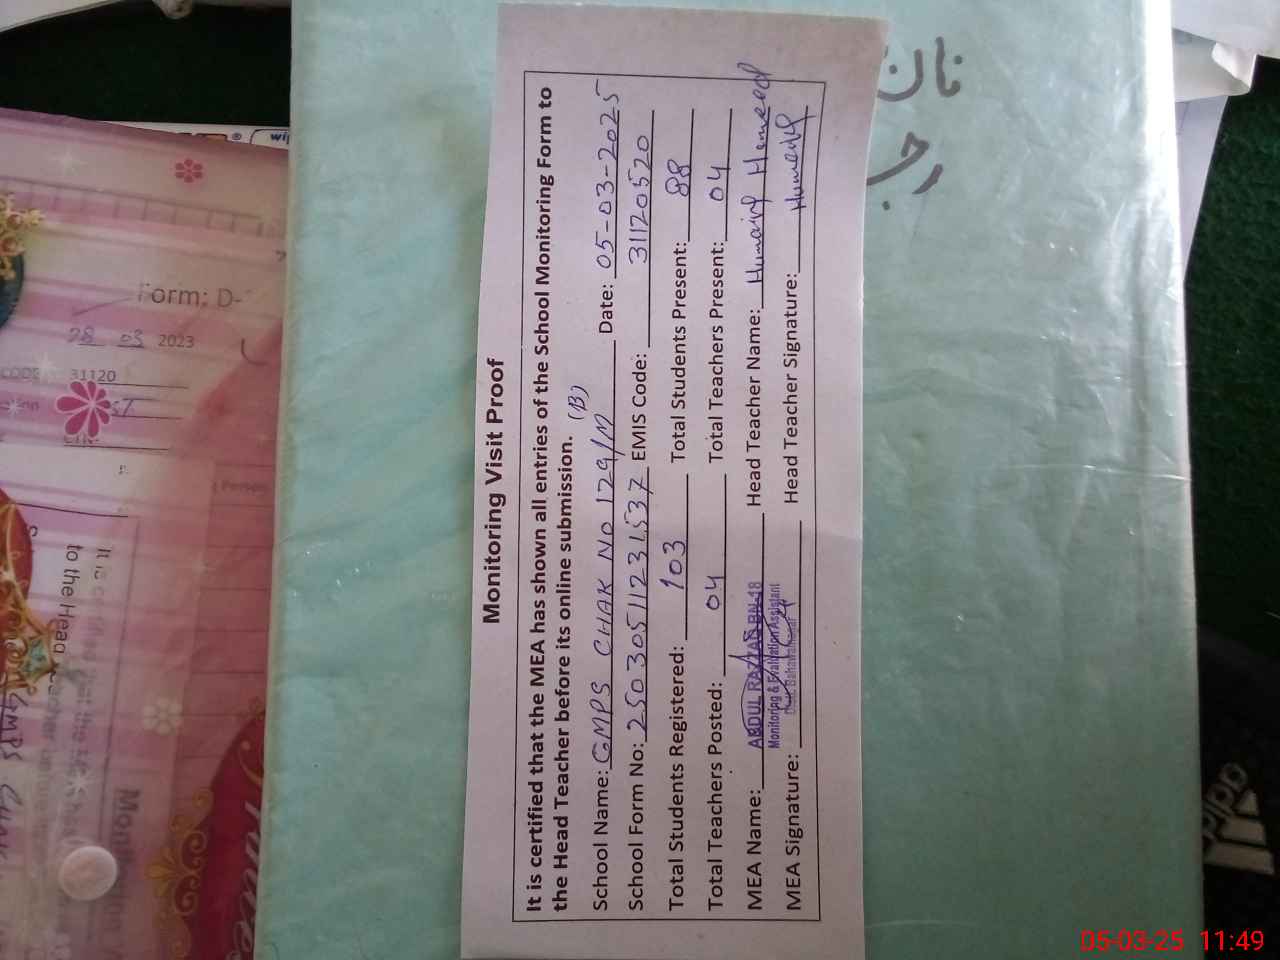 Monitoring Visit Proof
It is certified that the MEA has shown all entries of the School Monitoring Form to
the Head Teacher before its online submission. (B)
School Name: GMPS CHAK NO 129/M Date: 05-03-2025
School Form No: 25030511231537 EMIS Code: 31120520
Total Students Registered: 103 Total Students Present: 88
Total Teachers Posted: 04 Total Teachers Present: 04
MEA Name: ABDUL BN-18 Head Teacher Name: Humaira Hameed
Monitoring & Evaluation Assistant
Bahawalnagar
MEA Signature: Head Teacher Signature:
Form: D-
28 03 2023
CODE 31120
ST
Person
It is certified that the
to the Head Teacher
GMPS CHAK
نان
adidas
05-03-25 11:49